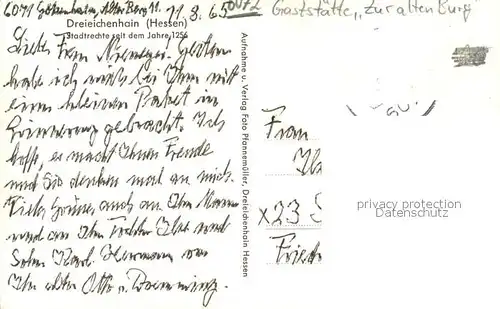 6071 Götzenhain, Alter Berg 11. 11.8.65
Dreieichenhain (Hessen)
Stadtrechte seit dem Jahre 1256
Liebe Frau Gestern
habe ich mich bei Ihnen mit
einem kleinen Paket in
Erinnerung gebracht. Ich
hoffe, es macht Ihnen Freude
und Sie denken mal an mich.
Viele Grüsse, auch an Ihren Mann
und an Ihre Tochter Ilse und
Sohn Karl Hermann von
Ihr alter Otto v.
Aufnahme u. Verlag Foto Pfannemüller, Dreieichenhain Hessen
Gaststätte „Zur alten Burg"
Frau
x23
Fried
privacy protection
Datenschutz